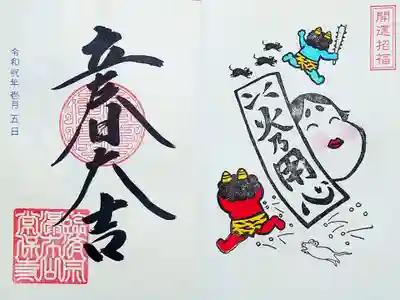 開運招福
火乃用心
立春大吉
令和弐年 壱月五日